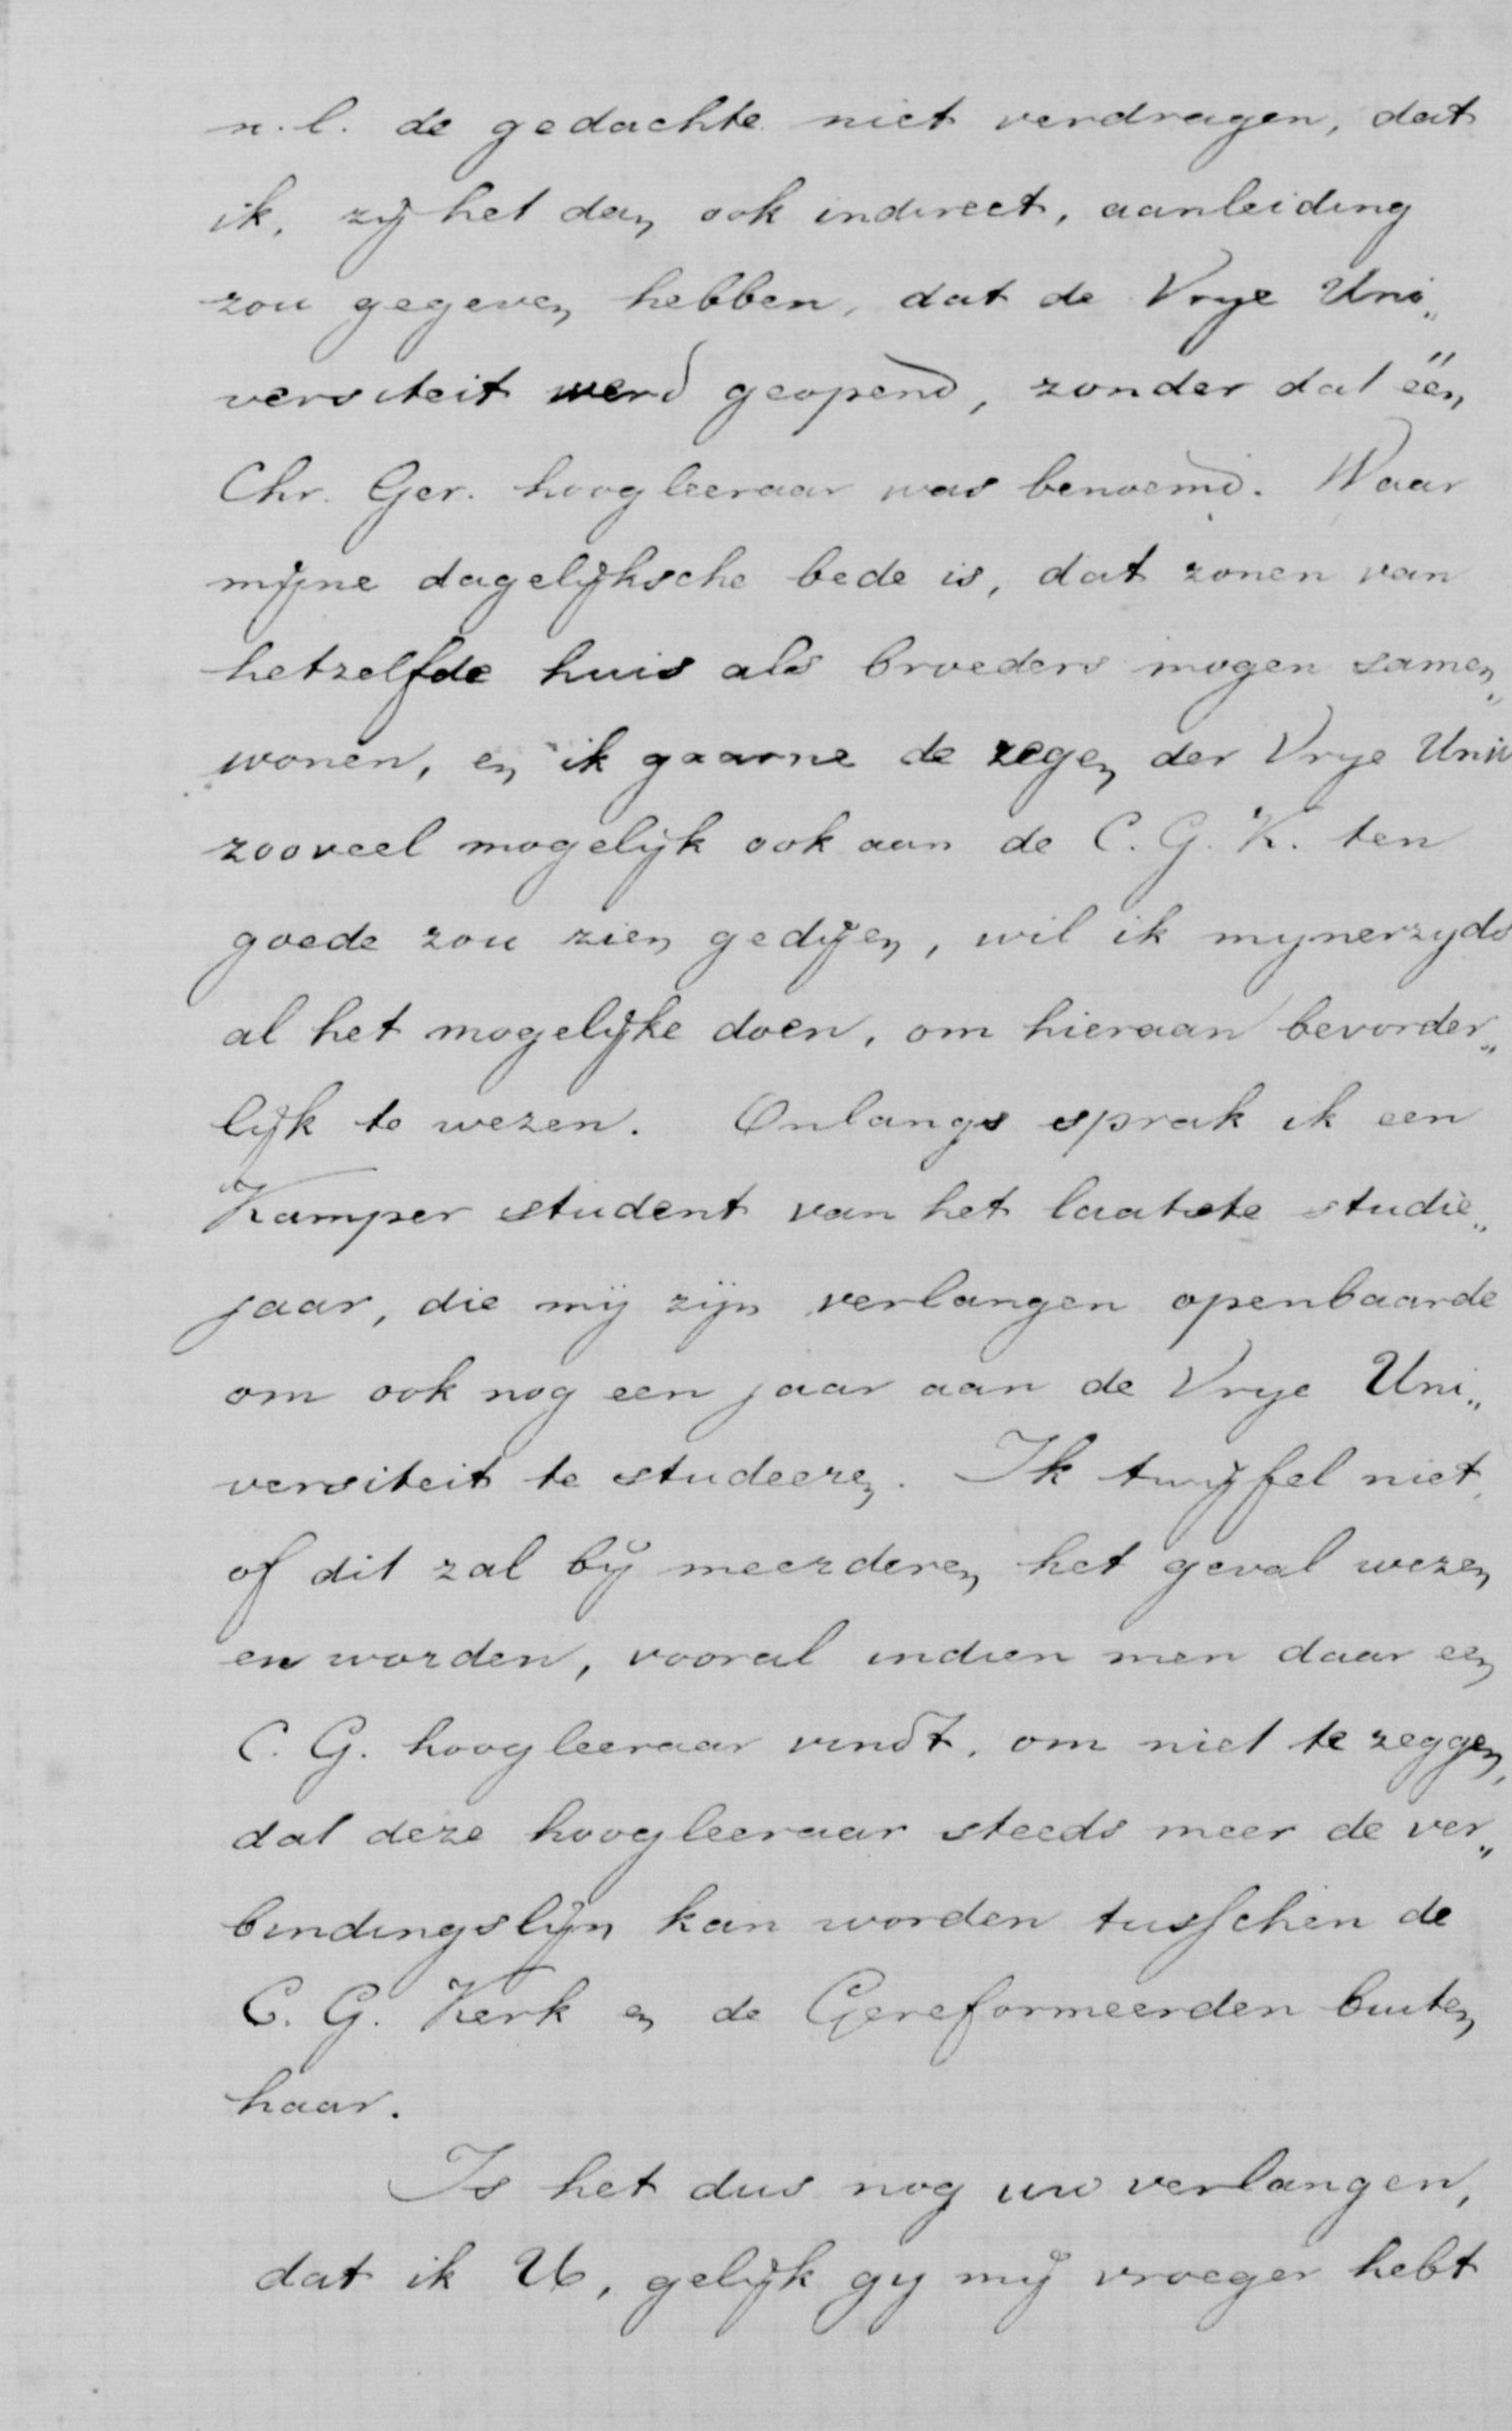 n.l. de gedachte niet verdragen, dat
ik, zij het dan ook indirect, aanleiding
zou gegeven hebben, dat de Vrye Uni„
versiteit werd geopend, zonder dat één
Chr. Ger. hoogleeraar was benoemd. Waar
mijne dagelijksche bede is, dat zonen van
hetzelfde huis als broeders mogen samen„
wonen, en ik gaarne de zegen der Vrye Univ
zooveel mogelijk ook aan de C. G. K. ten
goede zou zien gedijen, wil ik mynerzyds
al het mogelijke doen, om hieraan bevorder„
lijk te wezen. Onlangs sprak ik een
Kamper student van het laatste studie„
jaar, die mij zijn verlangen openbaarde
om ook nog een jaar aan de Vrye Uni„
versiteit te studeeren. Ik twijfel niet,
of dit zal bij meerderen het geval wezen
en worden, vooral indien men daar een
C. G. hoogleeraar vindt, om niet te zeggen,
dat deze hoogleeraar steeds meer de ver„
bindingslijn kan worden tusschen de
C. G. Kerk en de Gereformeerden buiten
haar.
Is het dus nog uw verlangen,
dat ik U, gelijk gy mij vroeger hebt